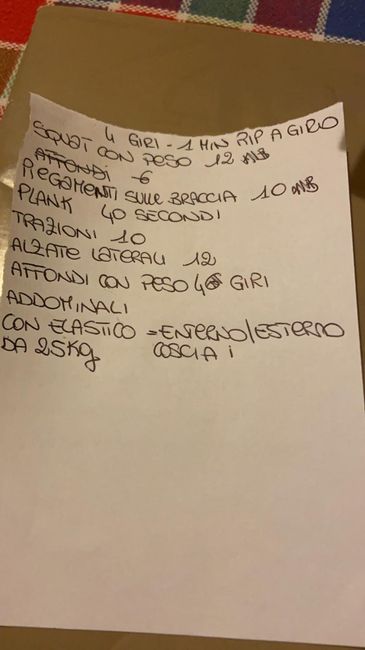 4 GIRI - 1 MIN RIP A GIRO
SQUAT CON PESO 12
AFFONDI - 6
PIEGAMENTI SULLE BRACCIA 10
PLANK 40 SECONDI
TRAZIONI 10
ALZATE LATERALI 12
AFFONDI CON PESO 4 GIRI
ADDOMINALI
CON ELASTICO = ENTERNO/ESTERNO
DA 25Kg COSCIA i